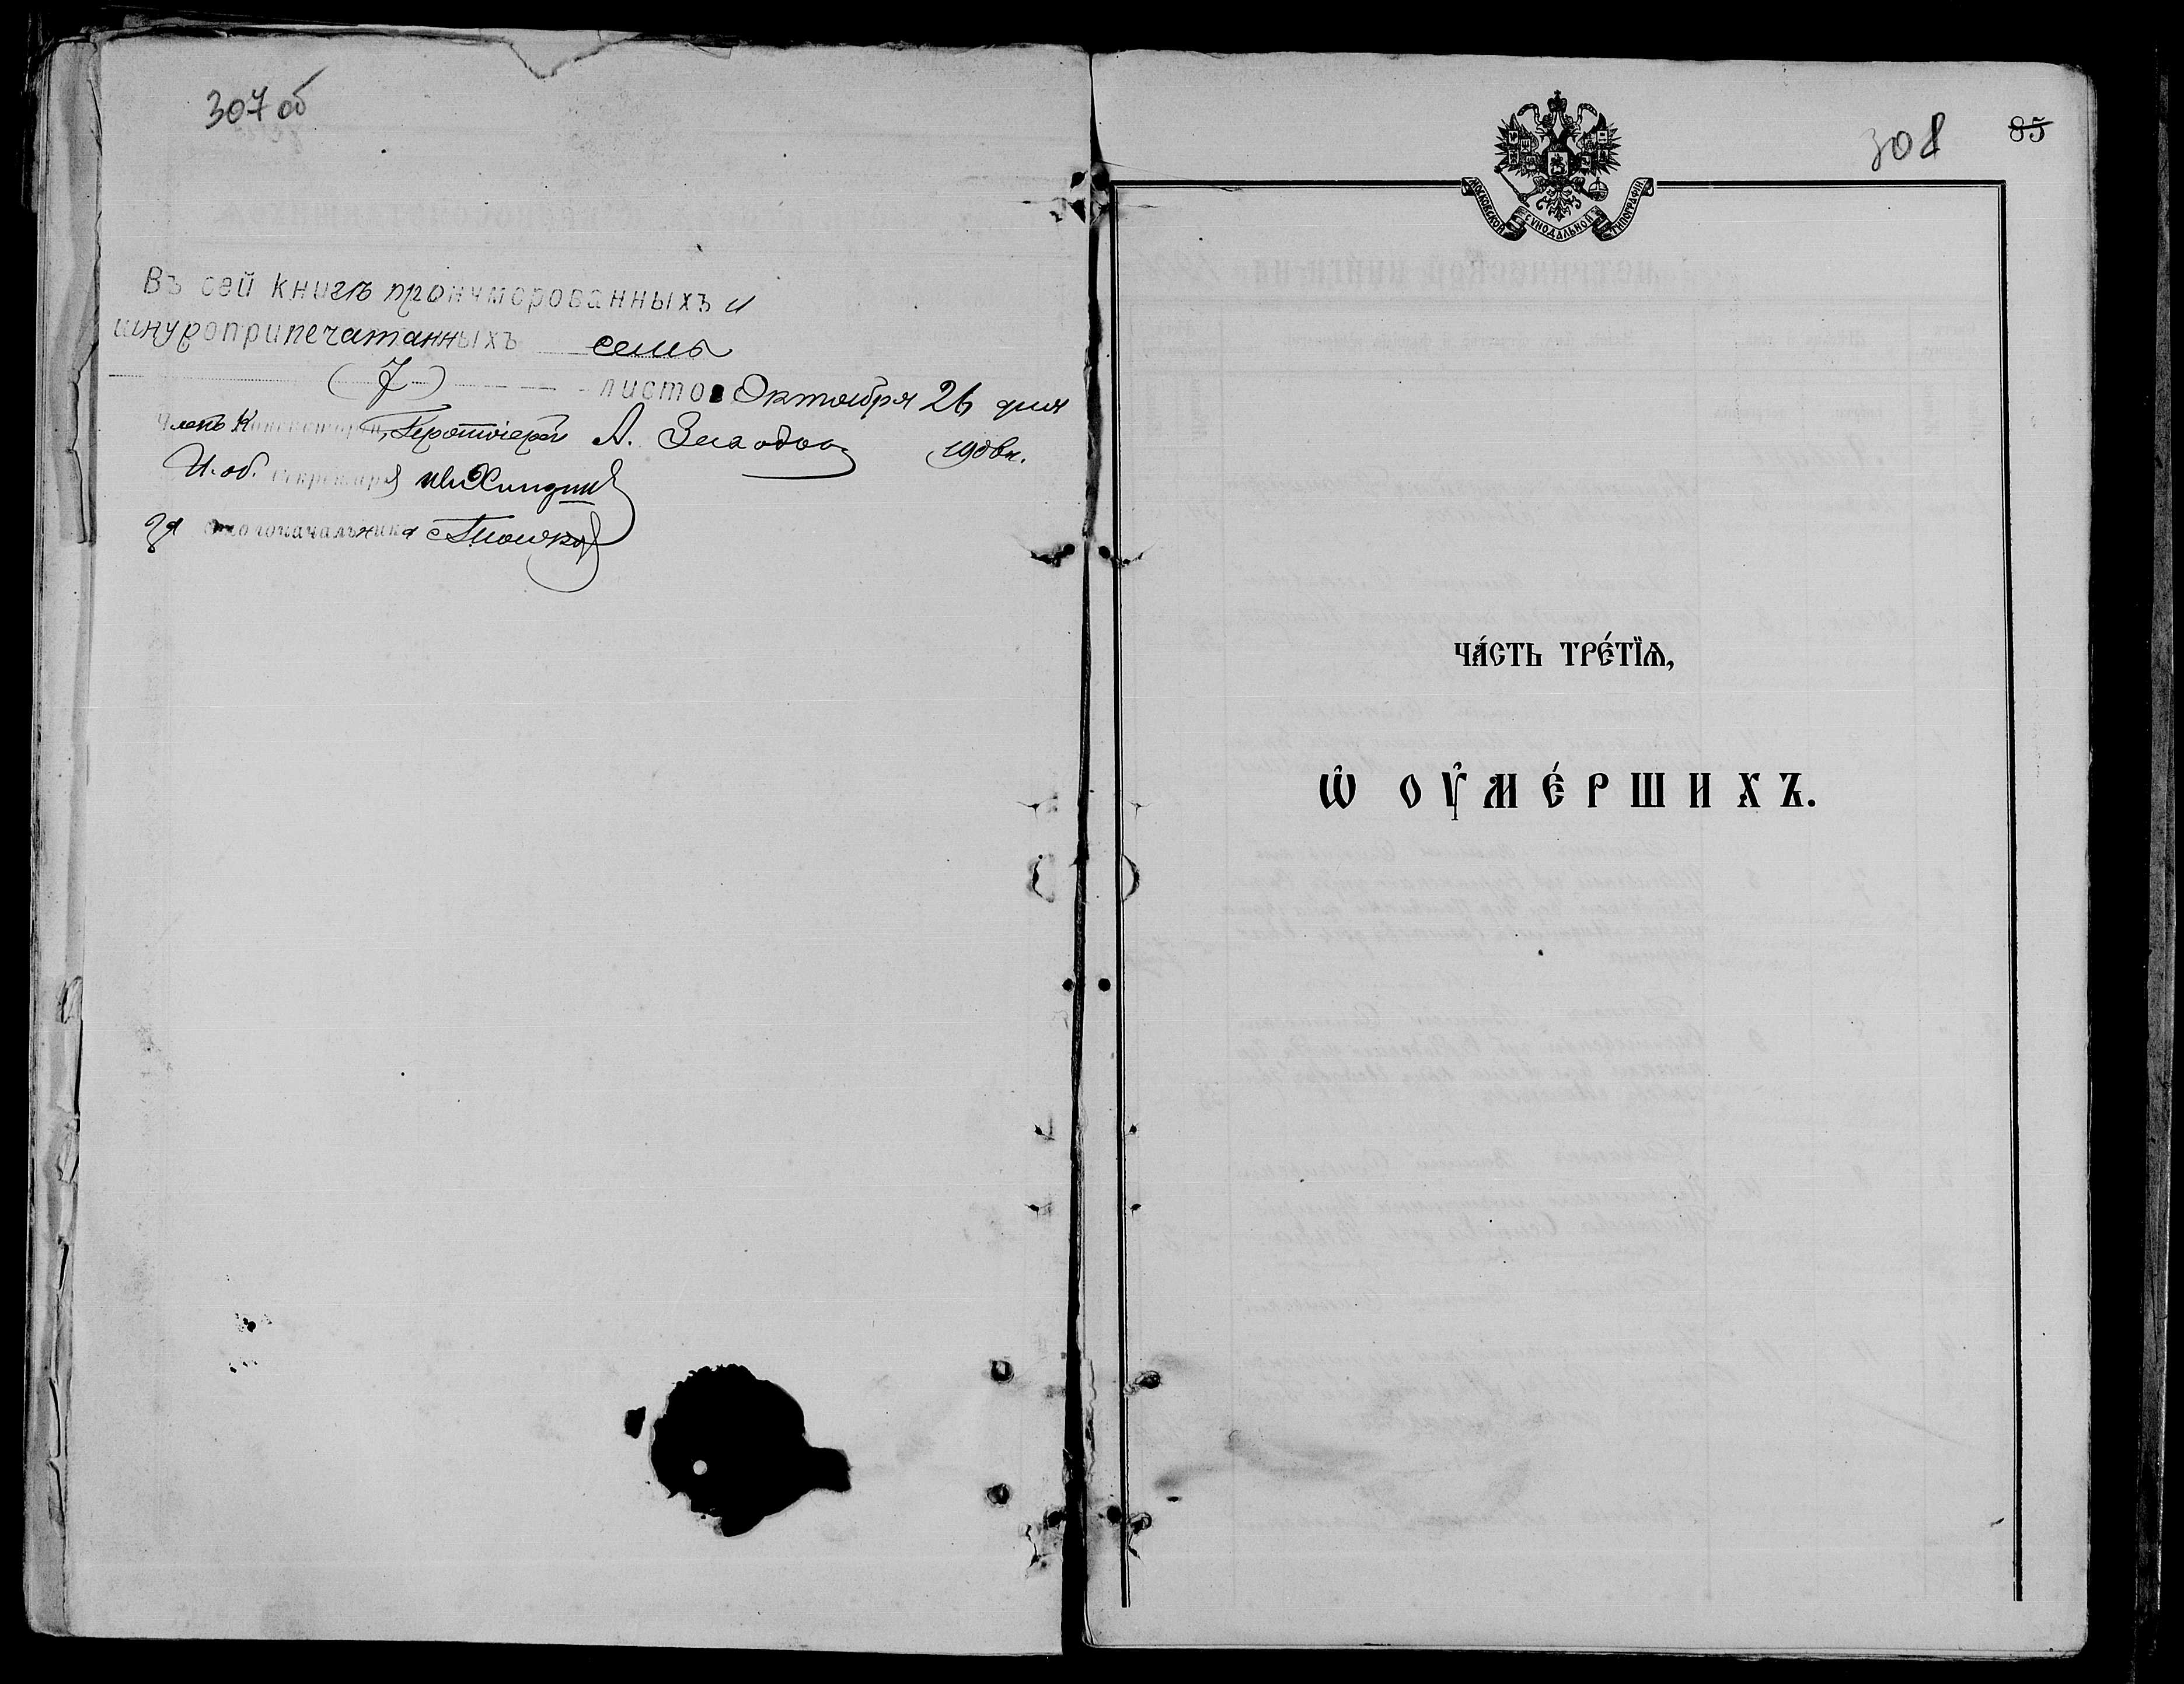 307 об
Въ сей книгѣ пронумерованныхъ и
шнуроприпечатанныхъ семь
(7) листовъ Октября 26 дня
Членъ Консисторіи, Протоіерей А. 190 г.
И. об. секретаря
За столоначальника
308 85
МОСКОВСКОЙ СѴНОДАЛЬНОЙ ТИПОГРАФІИ.
ЧА́СТЬ ТРЕ́ТЇѦ,
Ѡ҆ ОУ҆МЕ́РШИХЪ.